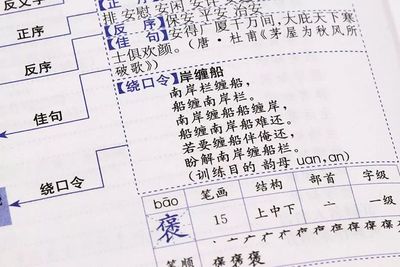 正序
反序
佳句
绕口令
排 安慰 安闲
【反序】保安 平安
【佳句】安得广厦千万间,大庇天下寒
士俱欢颜。(唐·杜甫《茅屋为秋风所
破歌》)
【绕口令】岸缠船
南岸栏缠船,
船缠南岸栏。
南岸缠船船缠岸,
船缠南岸船难还。
若要缠船伴俺还,
盼解南岸缠船栏。
(训练目的 韵母 uɑn,ɑn)
bāo 笔画 结构 部首 字级
褒 15 上中下 亠 一级
笔顺